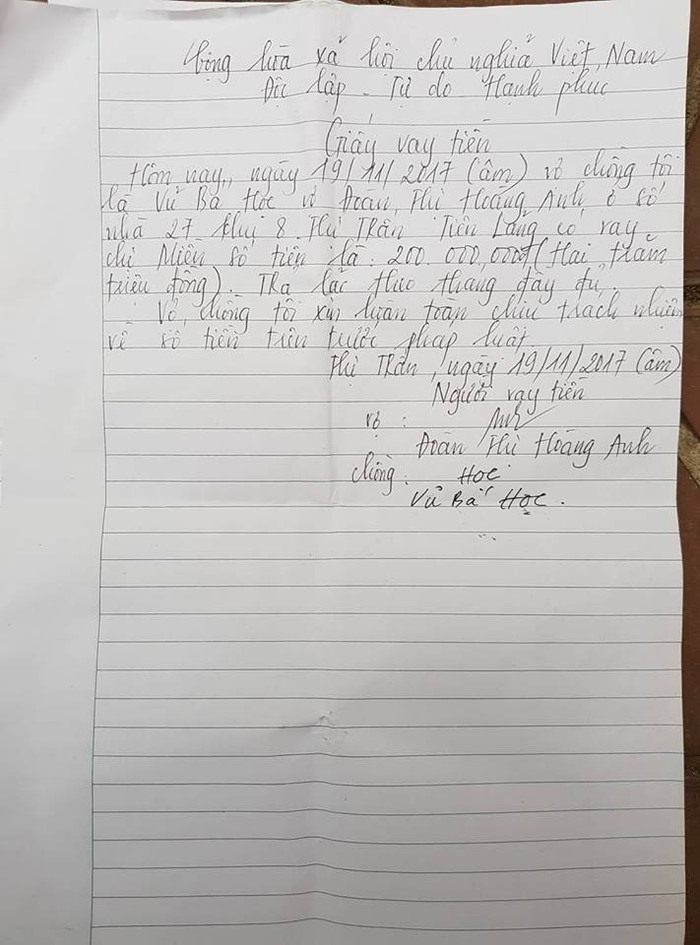 Cộng hòa xã hội chủ nghĩa Việt Nam
Độc lập - Tự do Hạnh phúc
Giấy vay tiền
Hôm nay, ngày 19/11/2017 (âm) vợ chồng tôi
là Vũ Bá Học vợ Đoàn Thị Hoàng Anh ở số
nhà 27 khu 8 Thị Trấn Tiên Lãng có vay
chị Miền số tiền là: 200.000,000đ (Hai trăm
triệu đồng). Trả lãi theo tháng đầy đủ.
- Vợ, chồng tôi xin hoàn toàn chịu trách nhiệm
về số tiền trên trước pháp luật.
Thị Trấn, ngày 19/11/2017 (âm)
Người vay tiền
vợ:
Đoàn Thị Hoàng Anh
chồng: Học
Vũ Bá Học.